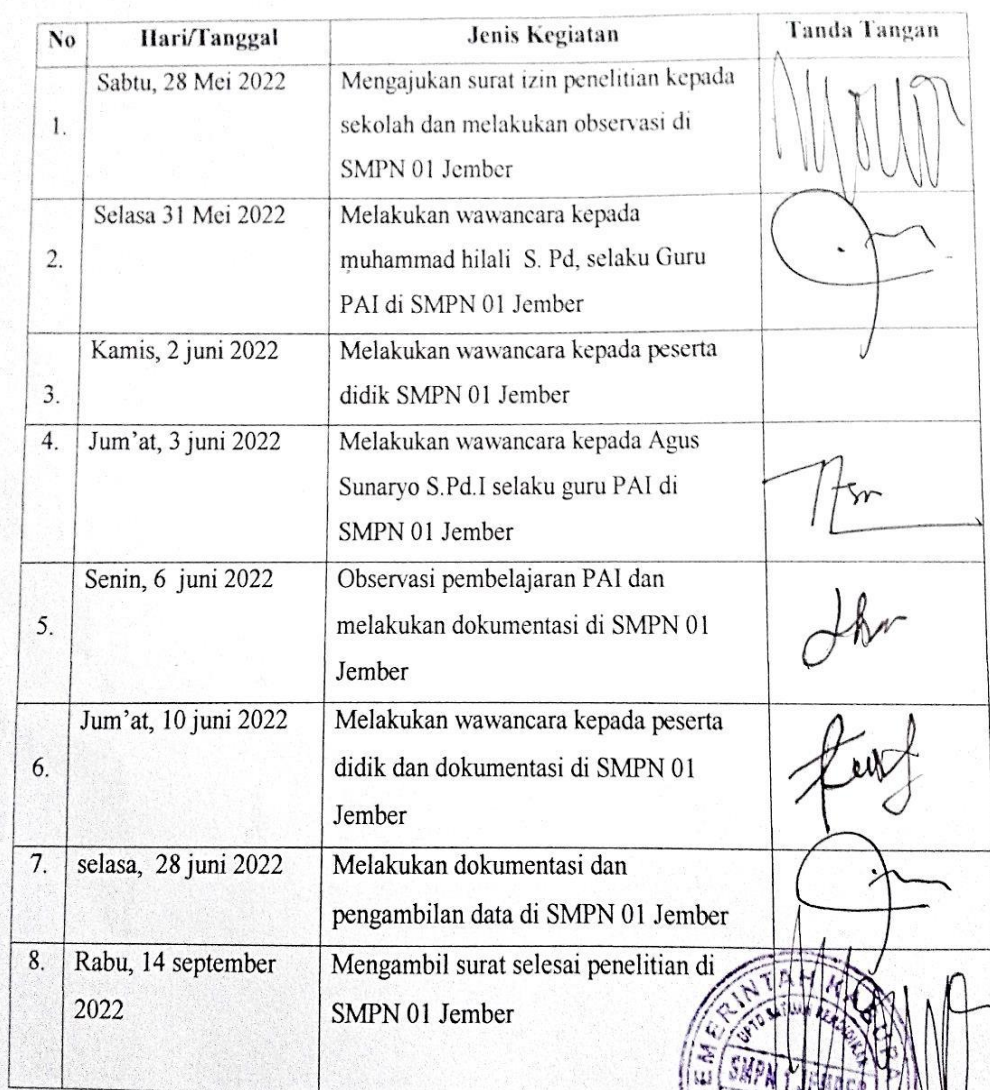 No Hari/Tanggal Jenis Kegiatan Tanda Tangan
1. Sabtu, 28 Mei 2022 Mengajukan surat izin penelitian kepada
sekolah dan melakukan observasi di
SMPN 01 Jember
2. Selasa 31 Mei 2022 Melakukan wawancara kepada
muhammad hilali S. Pd, selaku Guru
PAI di SMPN 01 Jember
3. Kamis, 2 juni 2022 Melakukan wawancara kepada peserta
didik SMPN 01 Jember
4. Jum'at, 3 juni 2022 Melakukan wawancara kepada Agus
Sunaryo S.Pd.I selaku guru PAI di
SMPN 01 Jember
5. Senin, 6 juni 2022 Observasi pembelajaran PAI dan
melakukan dokumentasi di SMPN 01
Jember
6. Jum'at, 10 juni 2022 Melakukan wawancara kepada peserta
didik dan dokumentasi di SMPN 01
Jember
7. selasa, 28 juni 2022 Melakukan dokumentasi dan
pengambilan data di SMPN 01 Jember
8. Rabu, 14 september Mengambil surat selesai penelitian di
2022 SMPN 01 Jember